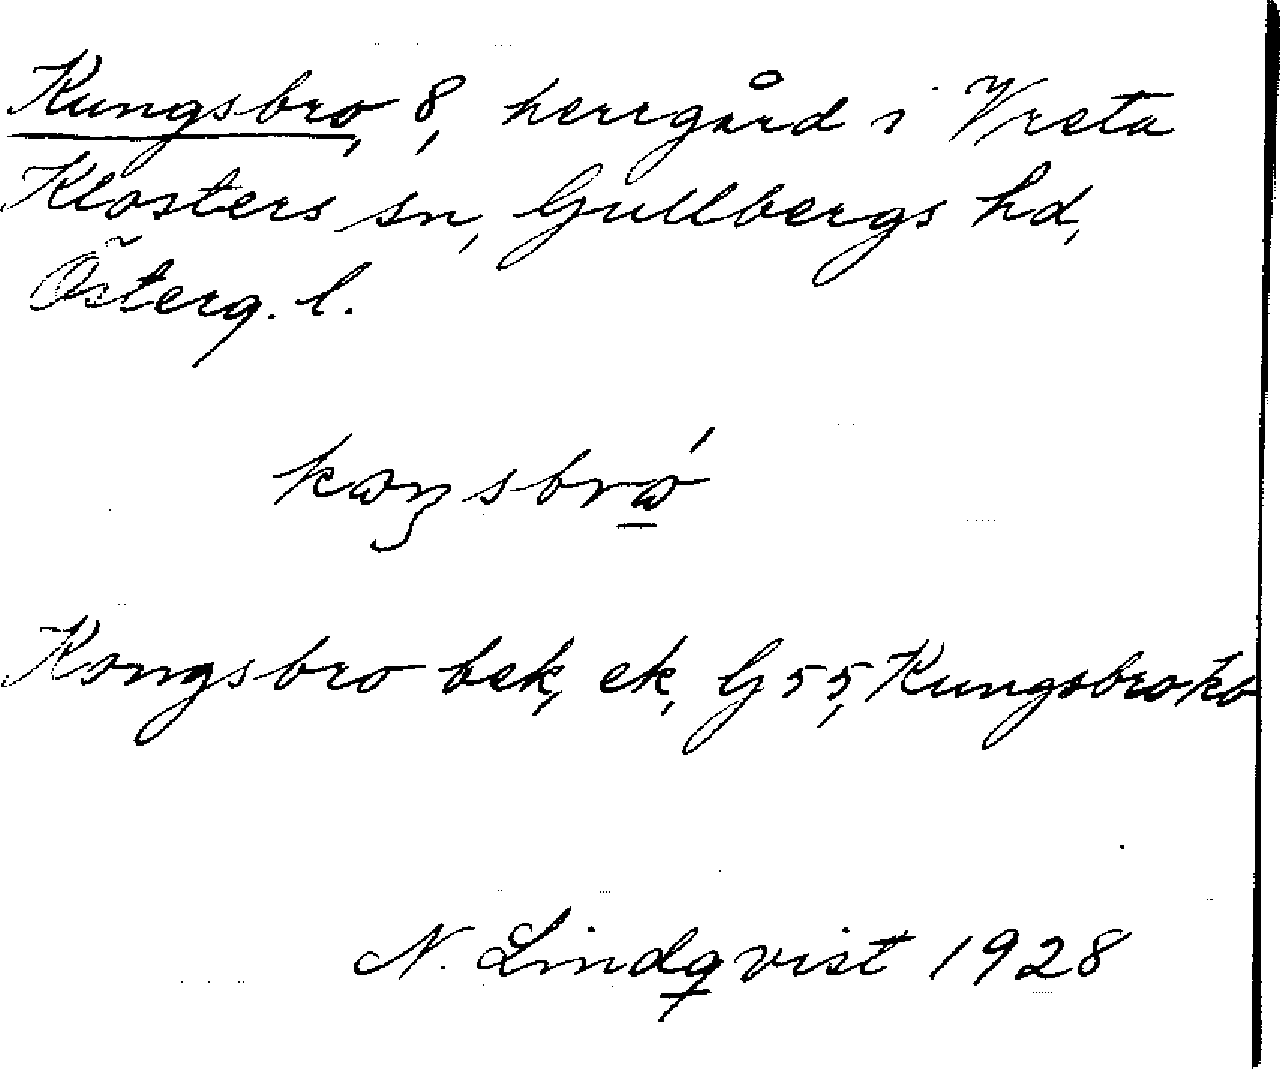 Kungsbro, 8, herrgård i Vreta
Klosters sn, Gullbergs hd,
Österg. l.
kωŋsbrώ
Kongsbro bek, ek, G 55, Kungsbro kb
N. Lindqvist 1928